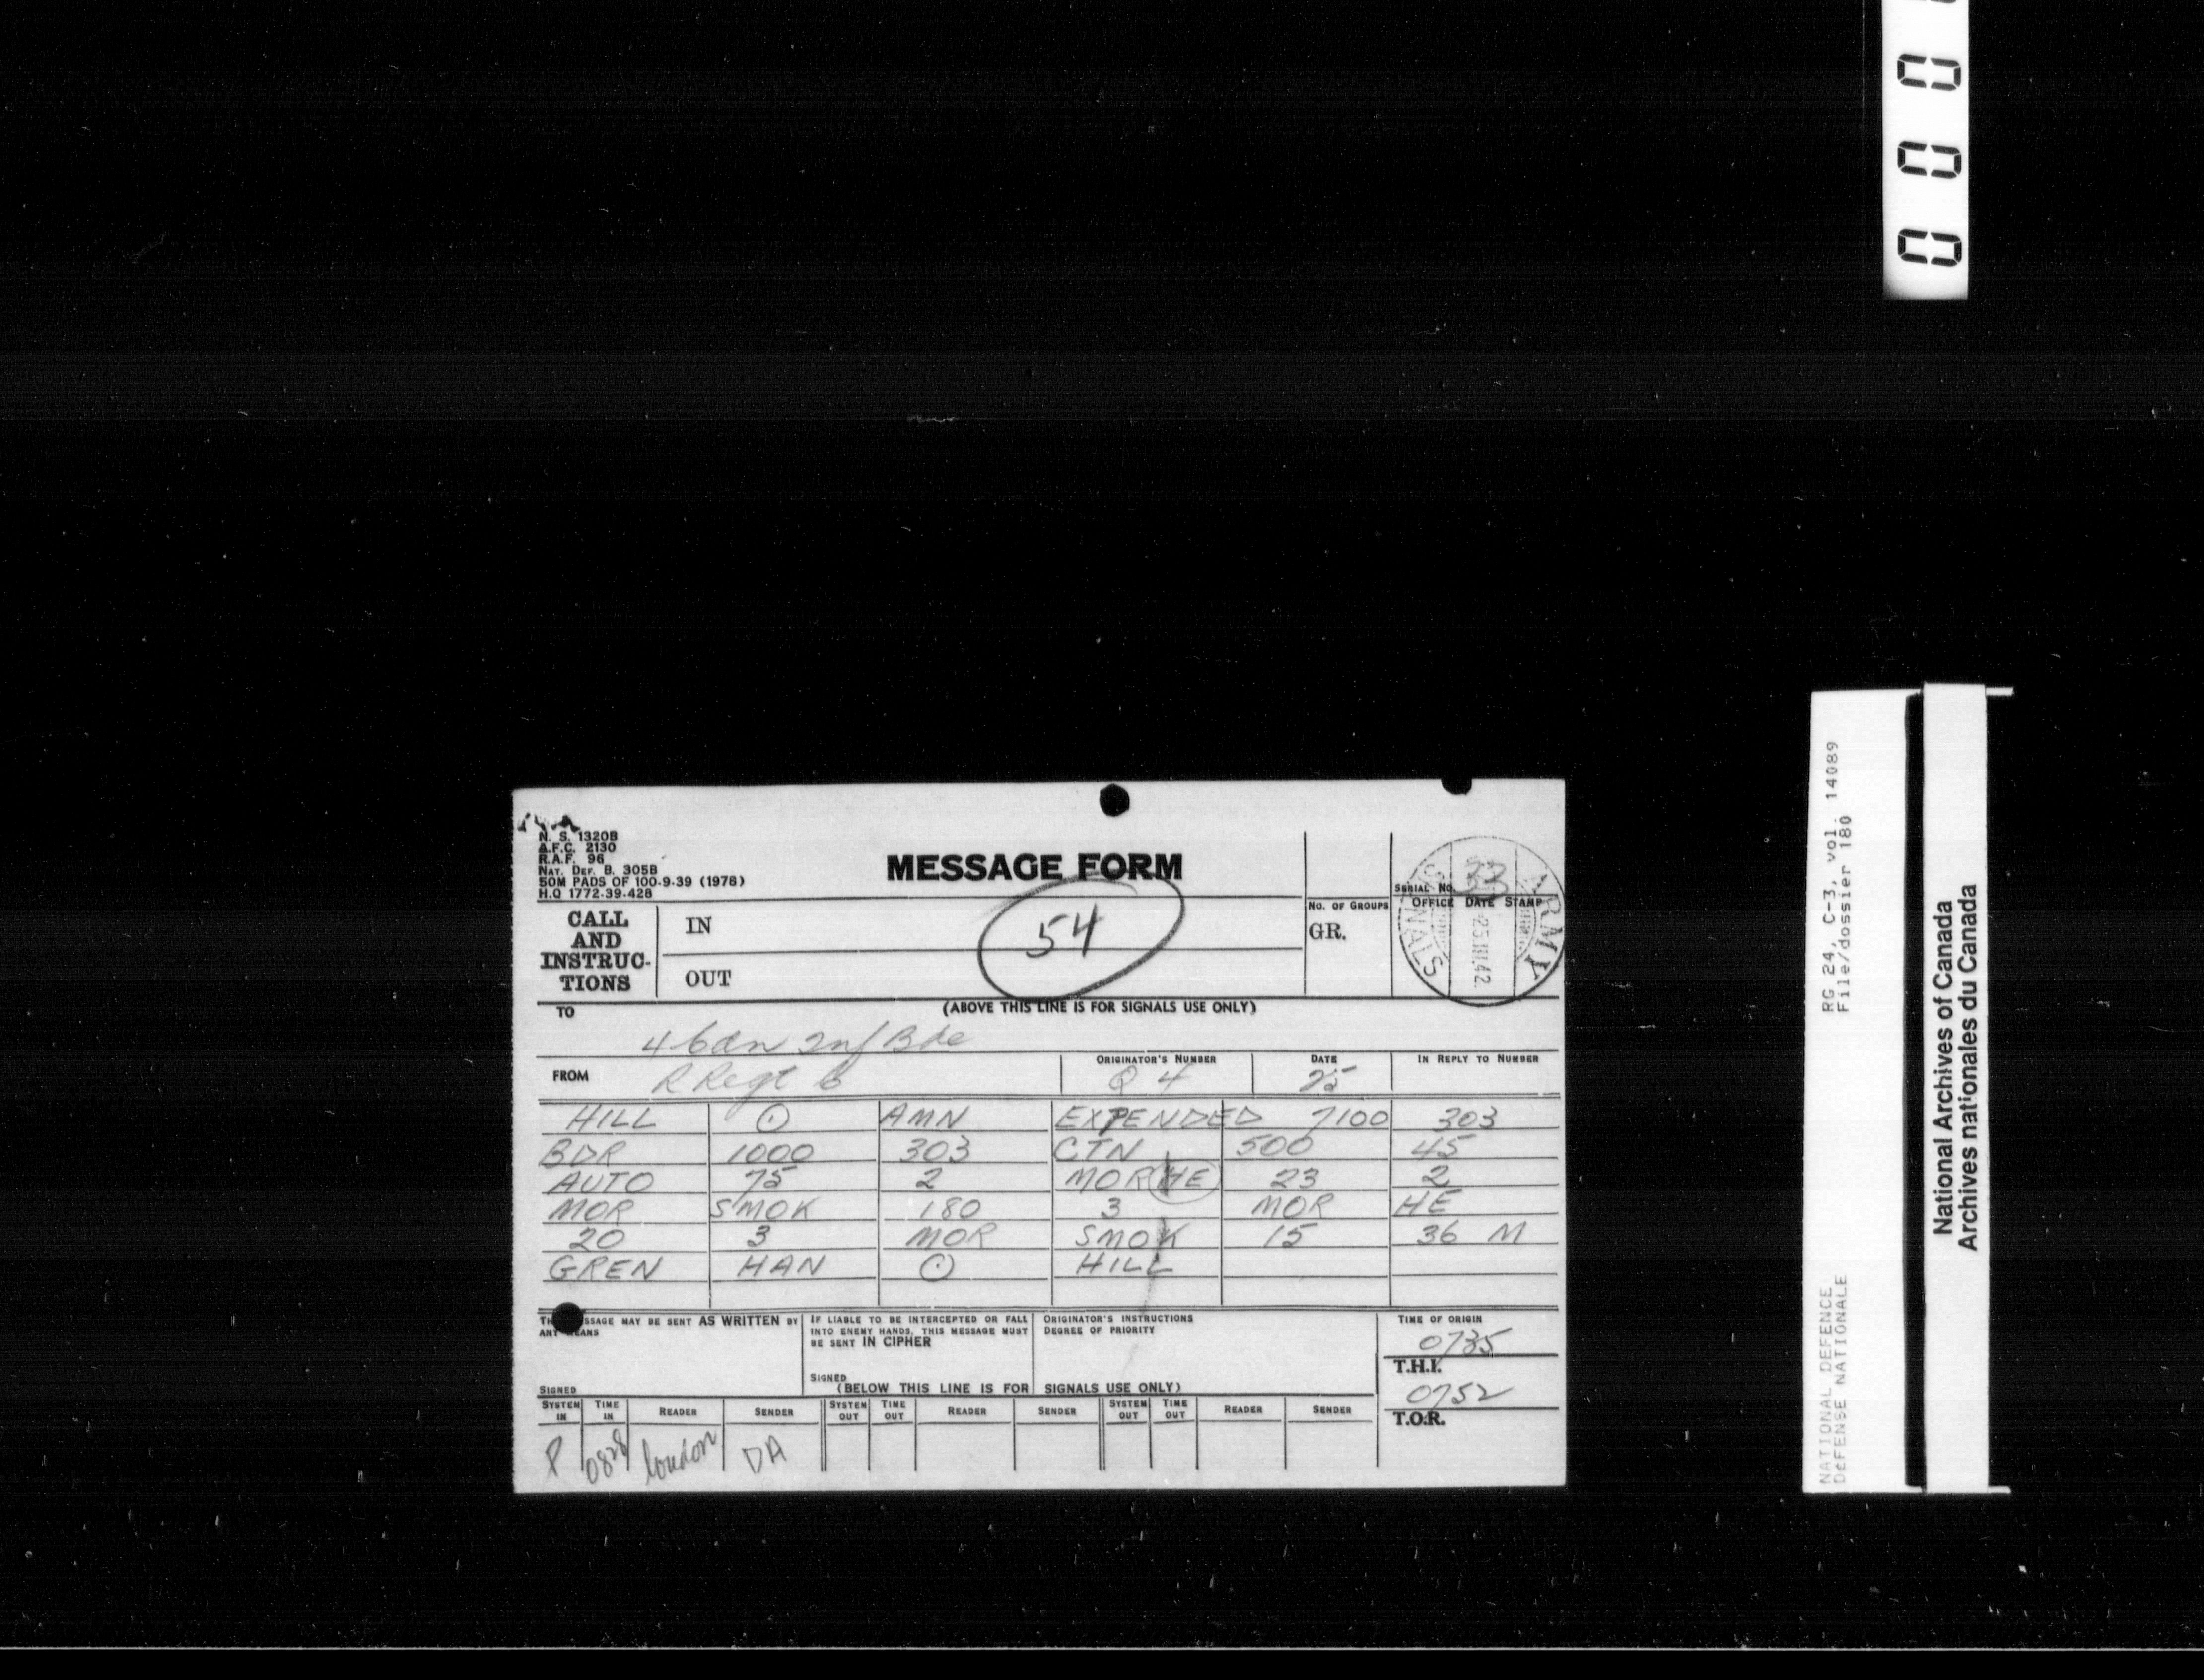 N. S. 1320B
A.F.C. 2130
R.A.F. 96
NAT. DEF. B. 305B
50M PADS OF 100-9-39 (1978)
H.Q 1772-39-428
MESSAGE FORM
SERIAL No. 33
CALL AND INSTRUC- TIONS
IN
54
No. OF GROUPS
GR.
OFFICE DATE STAMP
ARMY SIGNALS
OUT
(ABOVE THIS LINE IS FOR SIGNALS USE ONLY)
TO
4 Cdn Inf Bde
FROM R Regt C
ORIGINATOR'S NUMBER Q 4
DATE 25
IN REPLY TO NUMBER
HILL ⊙ AMN EXPENDED 7100 303
BDR 1000 303 CTN 500 45
AUTO 75 2 MOR HE 23 2
MOR SMOK 180 3 MOR HE
20 3 MOR SMOK 15 36 M
GREN HAN ⊙ HILL
SSAGE MAY BE SENT AS WRITTEN BY
ANY MEANS
SIGNED
IF LIABLE TO BE INTERCEPTED OR FALL
INTO ENEMY HANDS, THIS MESSAGE MUST
BE SENT IN CIPHER
SIGNED
ORIGINATOR'S INSTRUCTIONS
DEGREE OF PRIORITY
TIME OF ORIGIN
0735
T.H.I.
0752
T.O.R.
(BELOW THIS LINE IS FOR SIGNALS USE ONLY)
SYSTEM IN TIME IN READER SENDER SYSTEM OUT TIME OUT READER SENDER SYSTEM OUT TIME OUT READER SENDER
P 0828 london DA
0 0 0
RG 24, C-3, vol. 14089
File/dossier 180
NATIONAL DEFENCE
DéFENSE NATIONALE
National Archives of Canada
Archives nationales du Canada